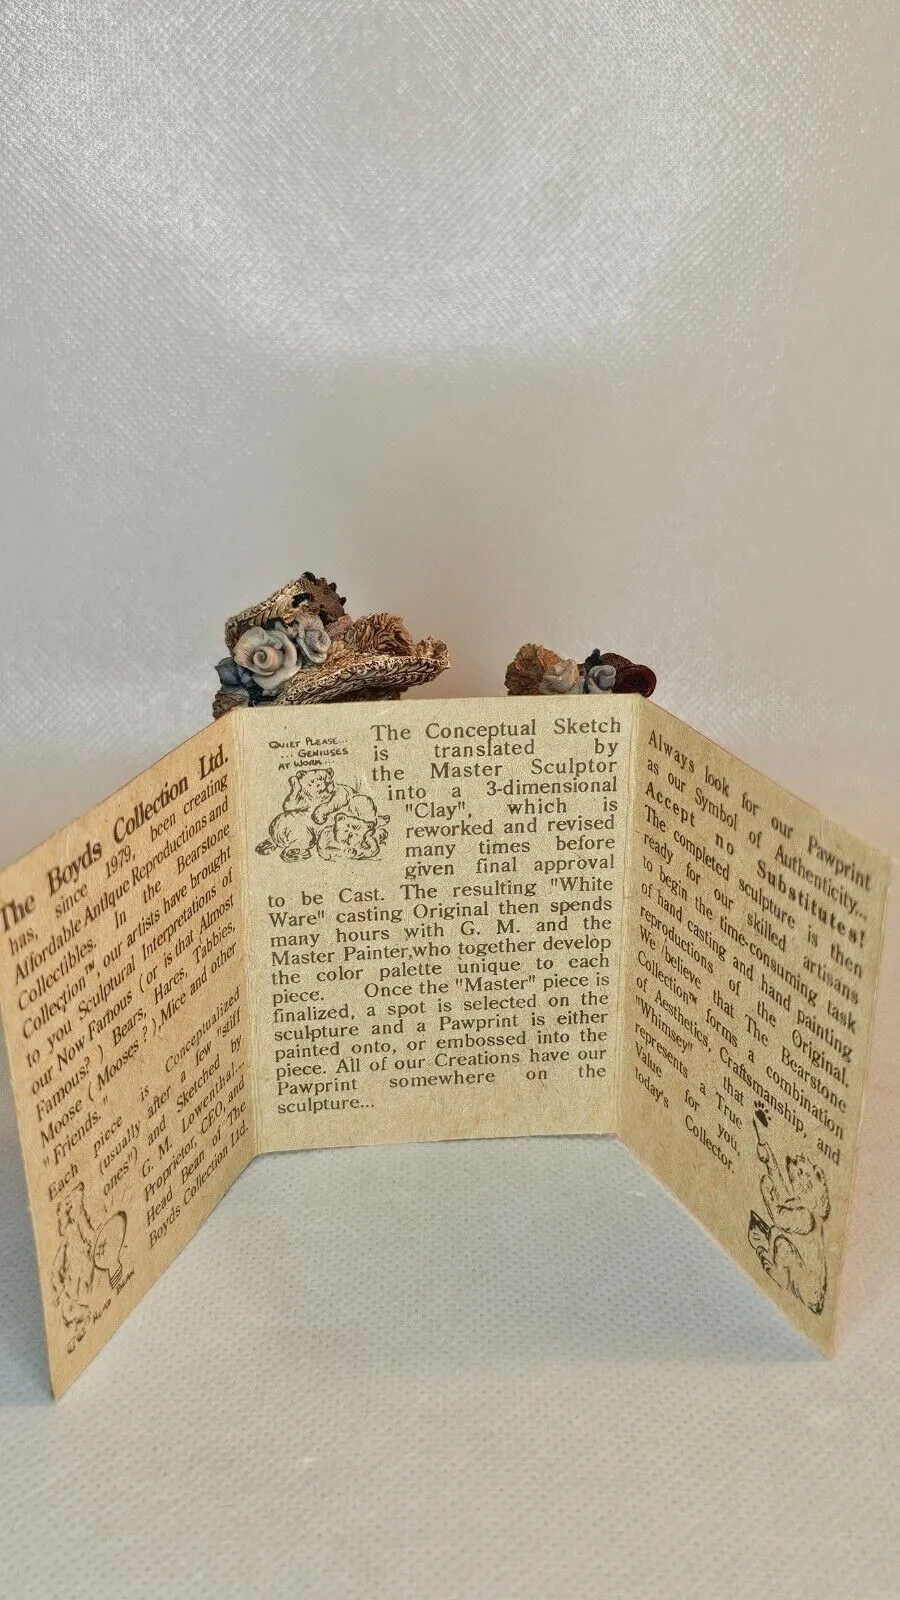 The Boyds Collection Ltd.
has, since 1979, been creating
Affordable Antique Reproductions and
Collectibles. In the Bearstone
Collection™, our artists have brought
to you Sculptural Interpretations of
our Now Famous (or is that Almost
Famous?) Bears, Hares, Tabbies,
Moose (Mooses?), Mice and other
"Friends."
Each piece is Conceptualized
(usually after a few "stiff
ones") and Sketched by
G. M. Lowenthal...
Proprietor, CEO, and
Head Bean of The
Boyds Collection Ltd.
HEAD BEAN
QUIET PLEASE...
... GENIUSES
AT WORK...
The Conceptual Sketch
is translated by
the Master Sculptor
into a 3-dimensional
"Clay", which is
reworked and revised
many times before
given final approval
to be Cast. The resulting "White
Ware" casting Original then spends
many hours with G. M. and the
Master Painter,who together develop
the color palette unique to each
piece. Once the "Master" piece is
finalized, a spot is selected on the
sculpture and a Pawprint is either
painted onto, or embossed into the
piece. All of our Creations have our
Pawprint somewhere on the
sculpture...
Always look for our Pawprint
as our Symbol of Authenticity...
Accept no Substitutes!
The completed sculpture is then
ready for our skilled artisans
to begin the time-consuming task
of hand casting and hand painting
reproductions of the Original.
We /believe that The Bearstone
Collection™ forms a combination
of Aesthetics, Craftsmanship, and
"Whimsey" that
represents a True
Value for you,
today's Collector.